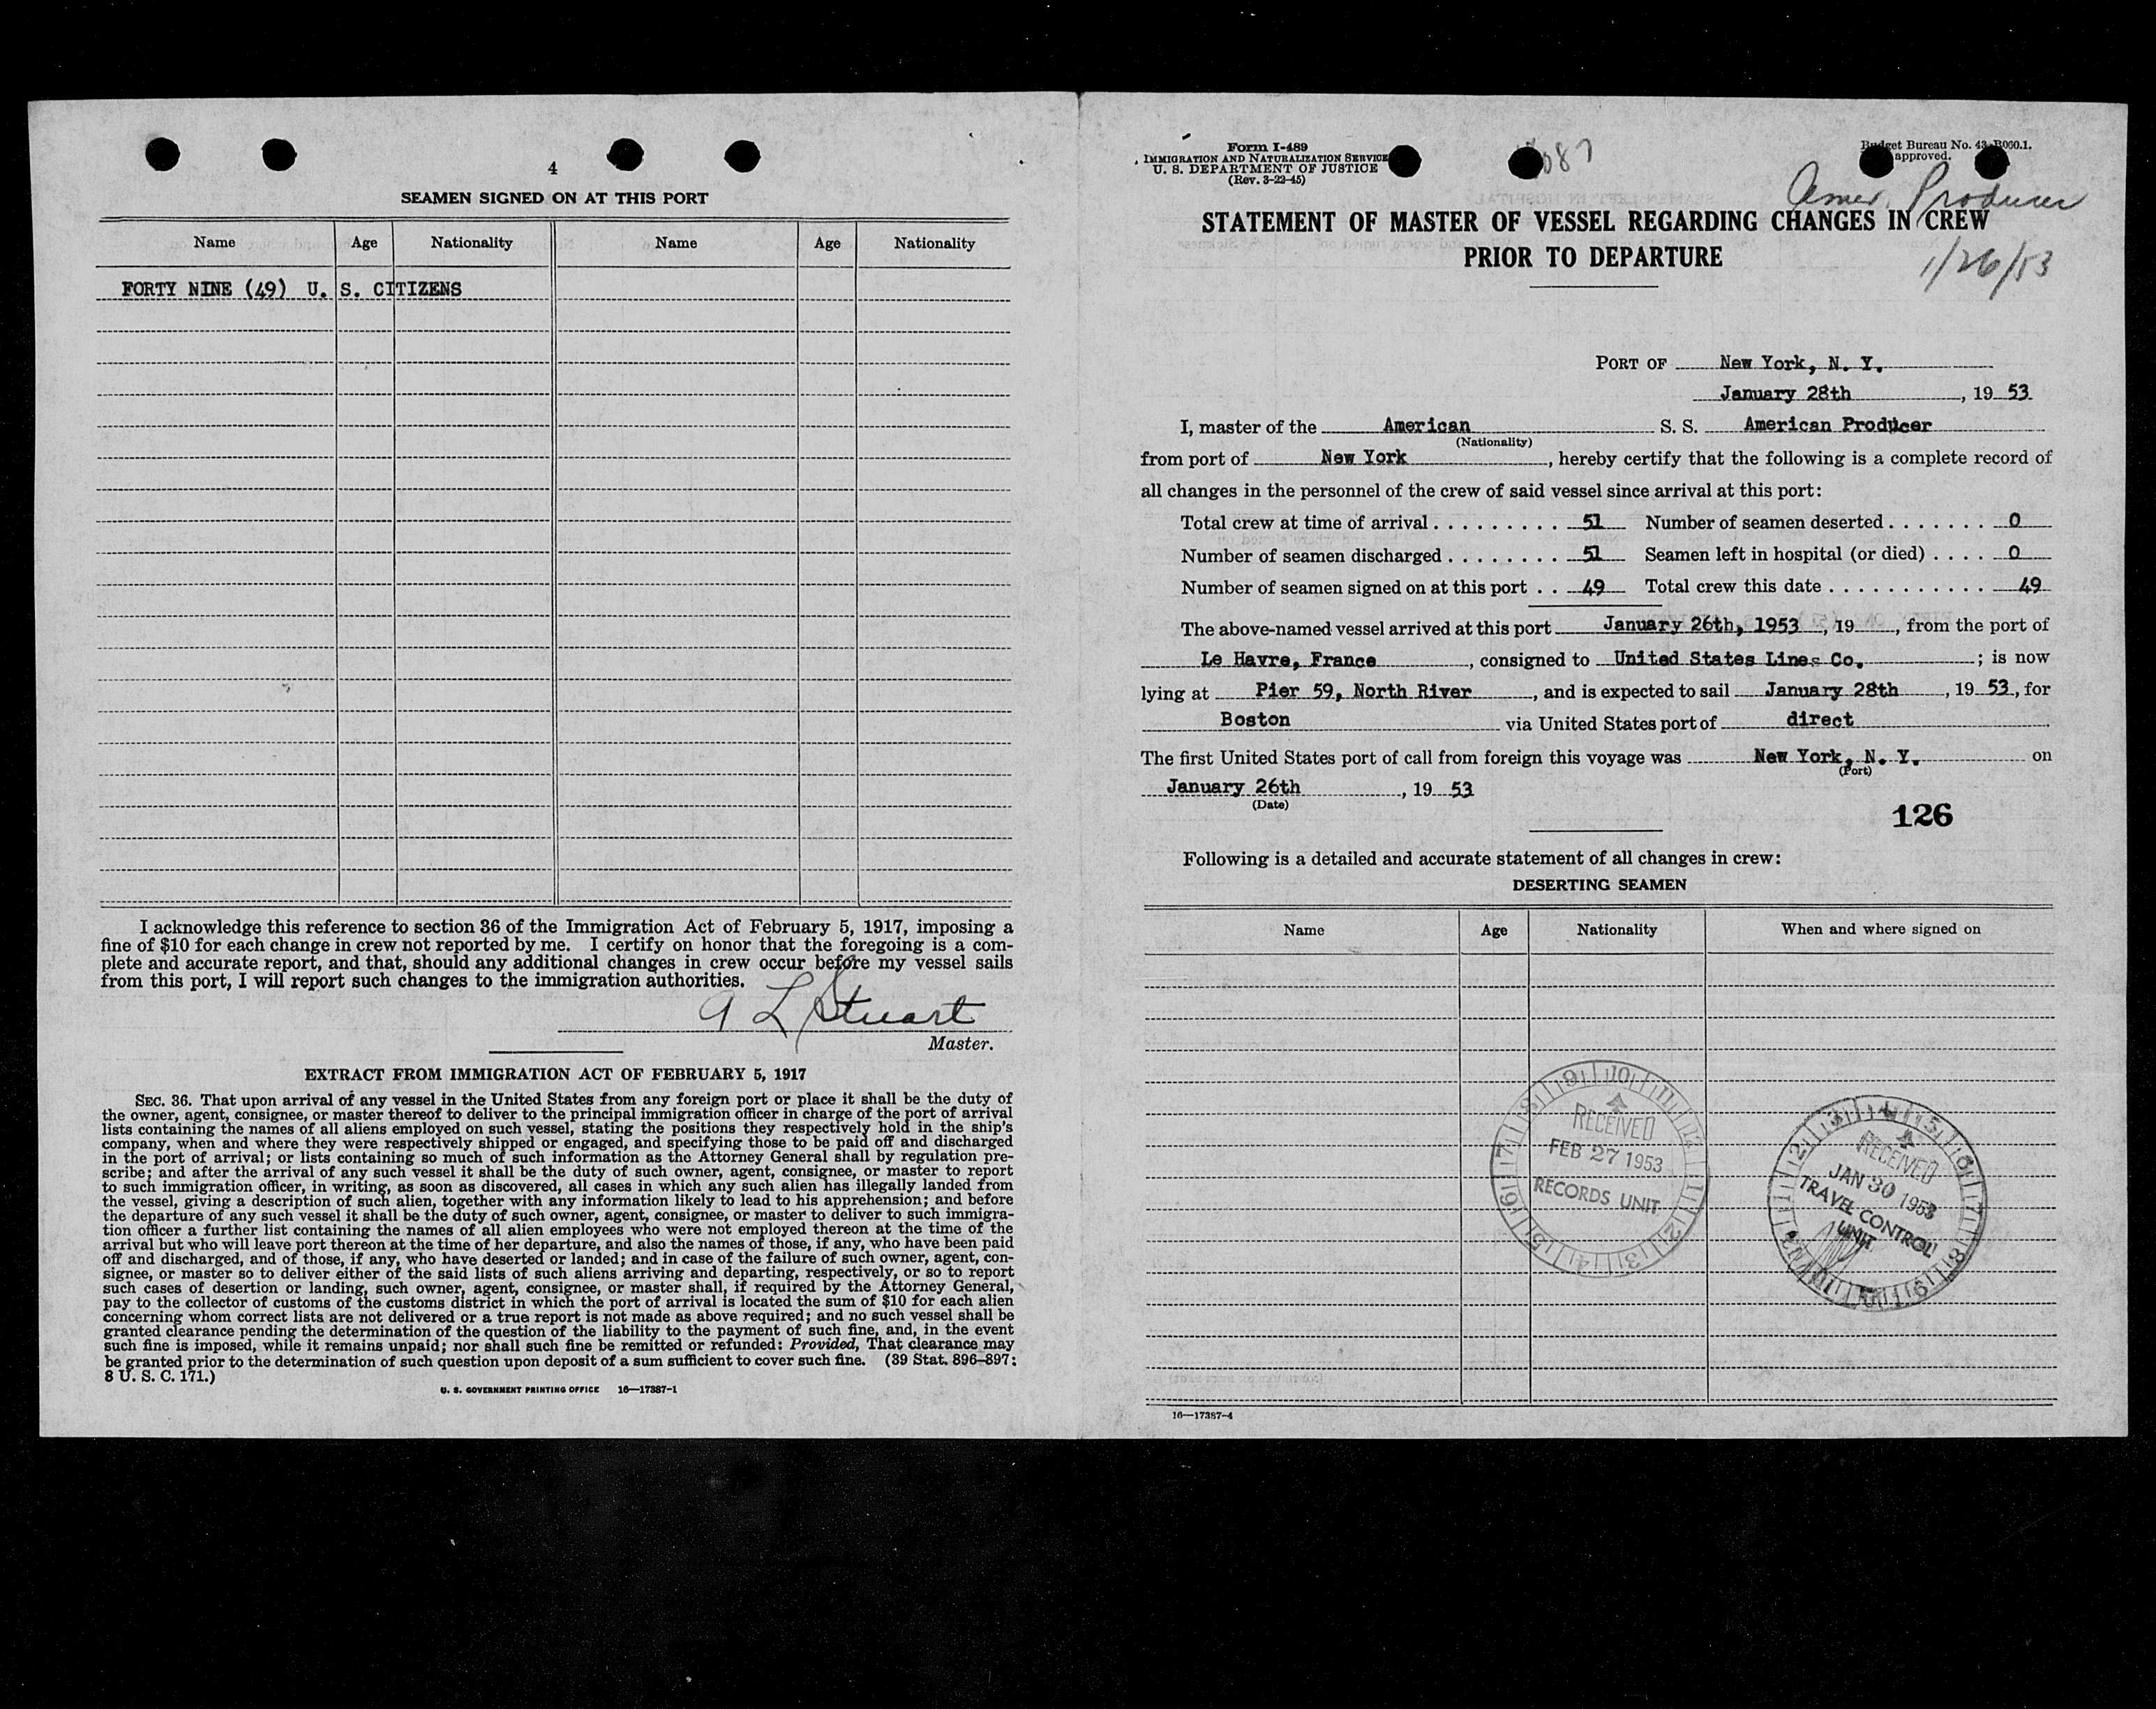 4
SEAMEN SIGNED ON AT THIS PORT
Name Age Nationality Name Age Nationality
FORTY NINE (49) U. S. CITIZENS
I acknowledge this reference to section 36 of the Immigration Act of February 5, 1917, imposing a
fine of $10 for each change in crew not reported by me. I certify on honor that the foregoing is a com-
plete and accurate report, and that, should any additional changes in crew occur before my vessel sails
from this port, I will report such changes to the immigration authorities.
A L Stuart
Master.
EXTRACT FROM IMMIGRATION ACT OF FEBRUARY 5, 1917
SEC. 36. That upon arrival of any vessel in the United States from any foreign port or place it shall be the duty of
the owner, agent, consignee, or master thereof to deliver to the principal immigration officer in charge of the port of arrival
lists containing the names of all aliens employed on such vessel, stating the positions they respectively hold in the ship's
company, when and where they were respectively shipped or engaged, and specifying those to be paid off and discharged
in the port of arrival; or lists containing so much of such information as the Attorney General shall by regulation pre-
scribe; and after the arrival of any such vessel it shall be the duty of such owner, agent, consignee, or master to report
to such immigration officer, in writing, as soon as discovered, all cases in which any such alien has illegally landed from
the vessel, giving a description of such alien, together with any information likely to lead to his apprehension; and before
the departure of any such vessel it shall be the duty of such owner, agent, consignee, or master to deliver to such immigra-
tion officer a further list containing the names of all alien employees who were not employed thereon at the time of the
arrival but who will leave port thereon at the time of her departure, and also the names of those, if any, who have been paid
off and discharged, and of those, if any, who have deserted or landed; and in case of the failure of such owner, agent, con-
signee, or master so to deliver either of the said lists of such aliens arriving and departing, respectively, or so to report
such cases of desertion or landing, such owner, agent, consignee, or master shall, if required by the Attorney General,
pay to the collector of customs of the customs district in which the port of arrival is located the sum of $10 for each alien
concerning whom correct lists are not delivered or a true report is not made as above required; and no such vessel shall be
granted clearance pending the determination of the question of the liability to the payment of such fine, and, in the event
such fine is imposed, while it remains unpaid; nor shall such fine be remitted or refunded: Provided, That clearance may
be granted prior to the determination of such question upon deposit of a sum sufficient to cover such fine. (39 Stat. 896–897;
8 U. S. C. 171.)
U. S. GOVERNMENT PRINTING OFFICE 16—17387-1
Form I-489
IMMIGRATION AND NATURALIZATION SERVICE
U. S. DEPARTMENT OF JUSTICE
(Rev. 3-22-45)
Bureau No.
approved.
Amer. Producer
STATEMENT OF MASTER OF VESSEL REGARDING CHANGES IN CREW
PRIOR TO DEPARTURE
1/26/53
PORT OF New York, N. Y.
January 28th, 19 53
I, master of the American S. S. American Producer
(Nationality)
from port of New York, hereby certify that the following is a complete record of
all changes in the personnel of the crew of said vessel since arrival at this port:
Total crew at time of arrival . . . . . . . . . 51 Number of seamen deserted . . . . . . . 0
Number of seamen discharged . . . . . . . . 51 Seamen left in hospital (or died) . . . . 0
Number of seamen signed on at this port . . 49 Total crew this date . . . . . . . . . . . 49
The above-named vessel arrived at this port January 26th, 1953, 19, from the port of
Le Havre, France, consigned to United States Lines Co. ; is now
lying at Pier 59, North River, and is expected to sail January 28th, 19 53, for
Boston via United States port of direct
The first United States port of call from foreign this voyage was New York, N. Y. on
(Port)
January 26th, 19 53
(Date)
126
Following is a detailed and accurate statement of all changes in crew:
DESERTING SEAMEN
Name Age Nationality When and where signed on
RECEIVED
FEB 27 1953
RECORDS UNIT
RECEIVED
JAN 30 1953
TRAVEL CONTROL
UNIT
16—17387-4